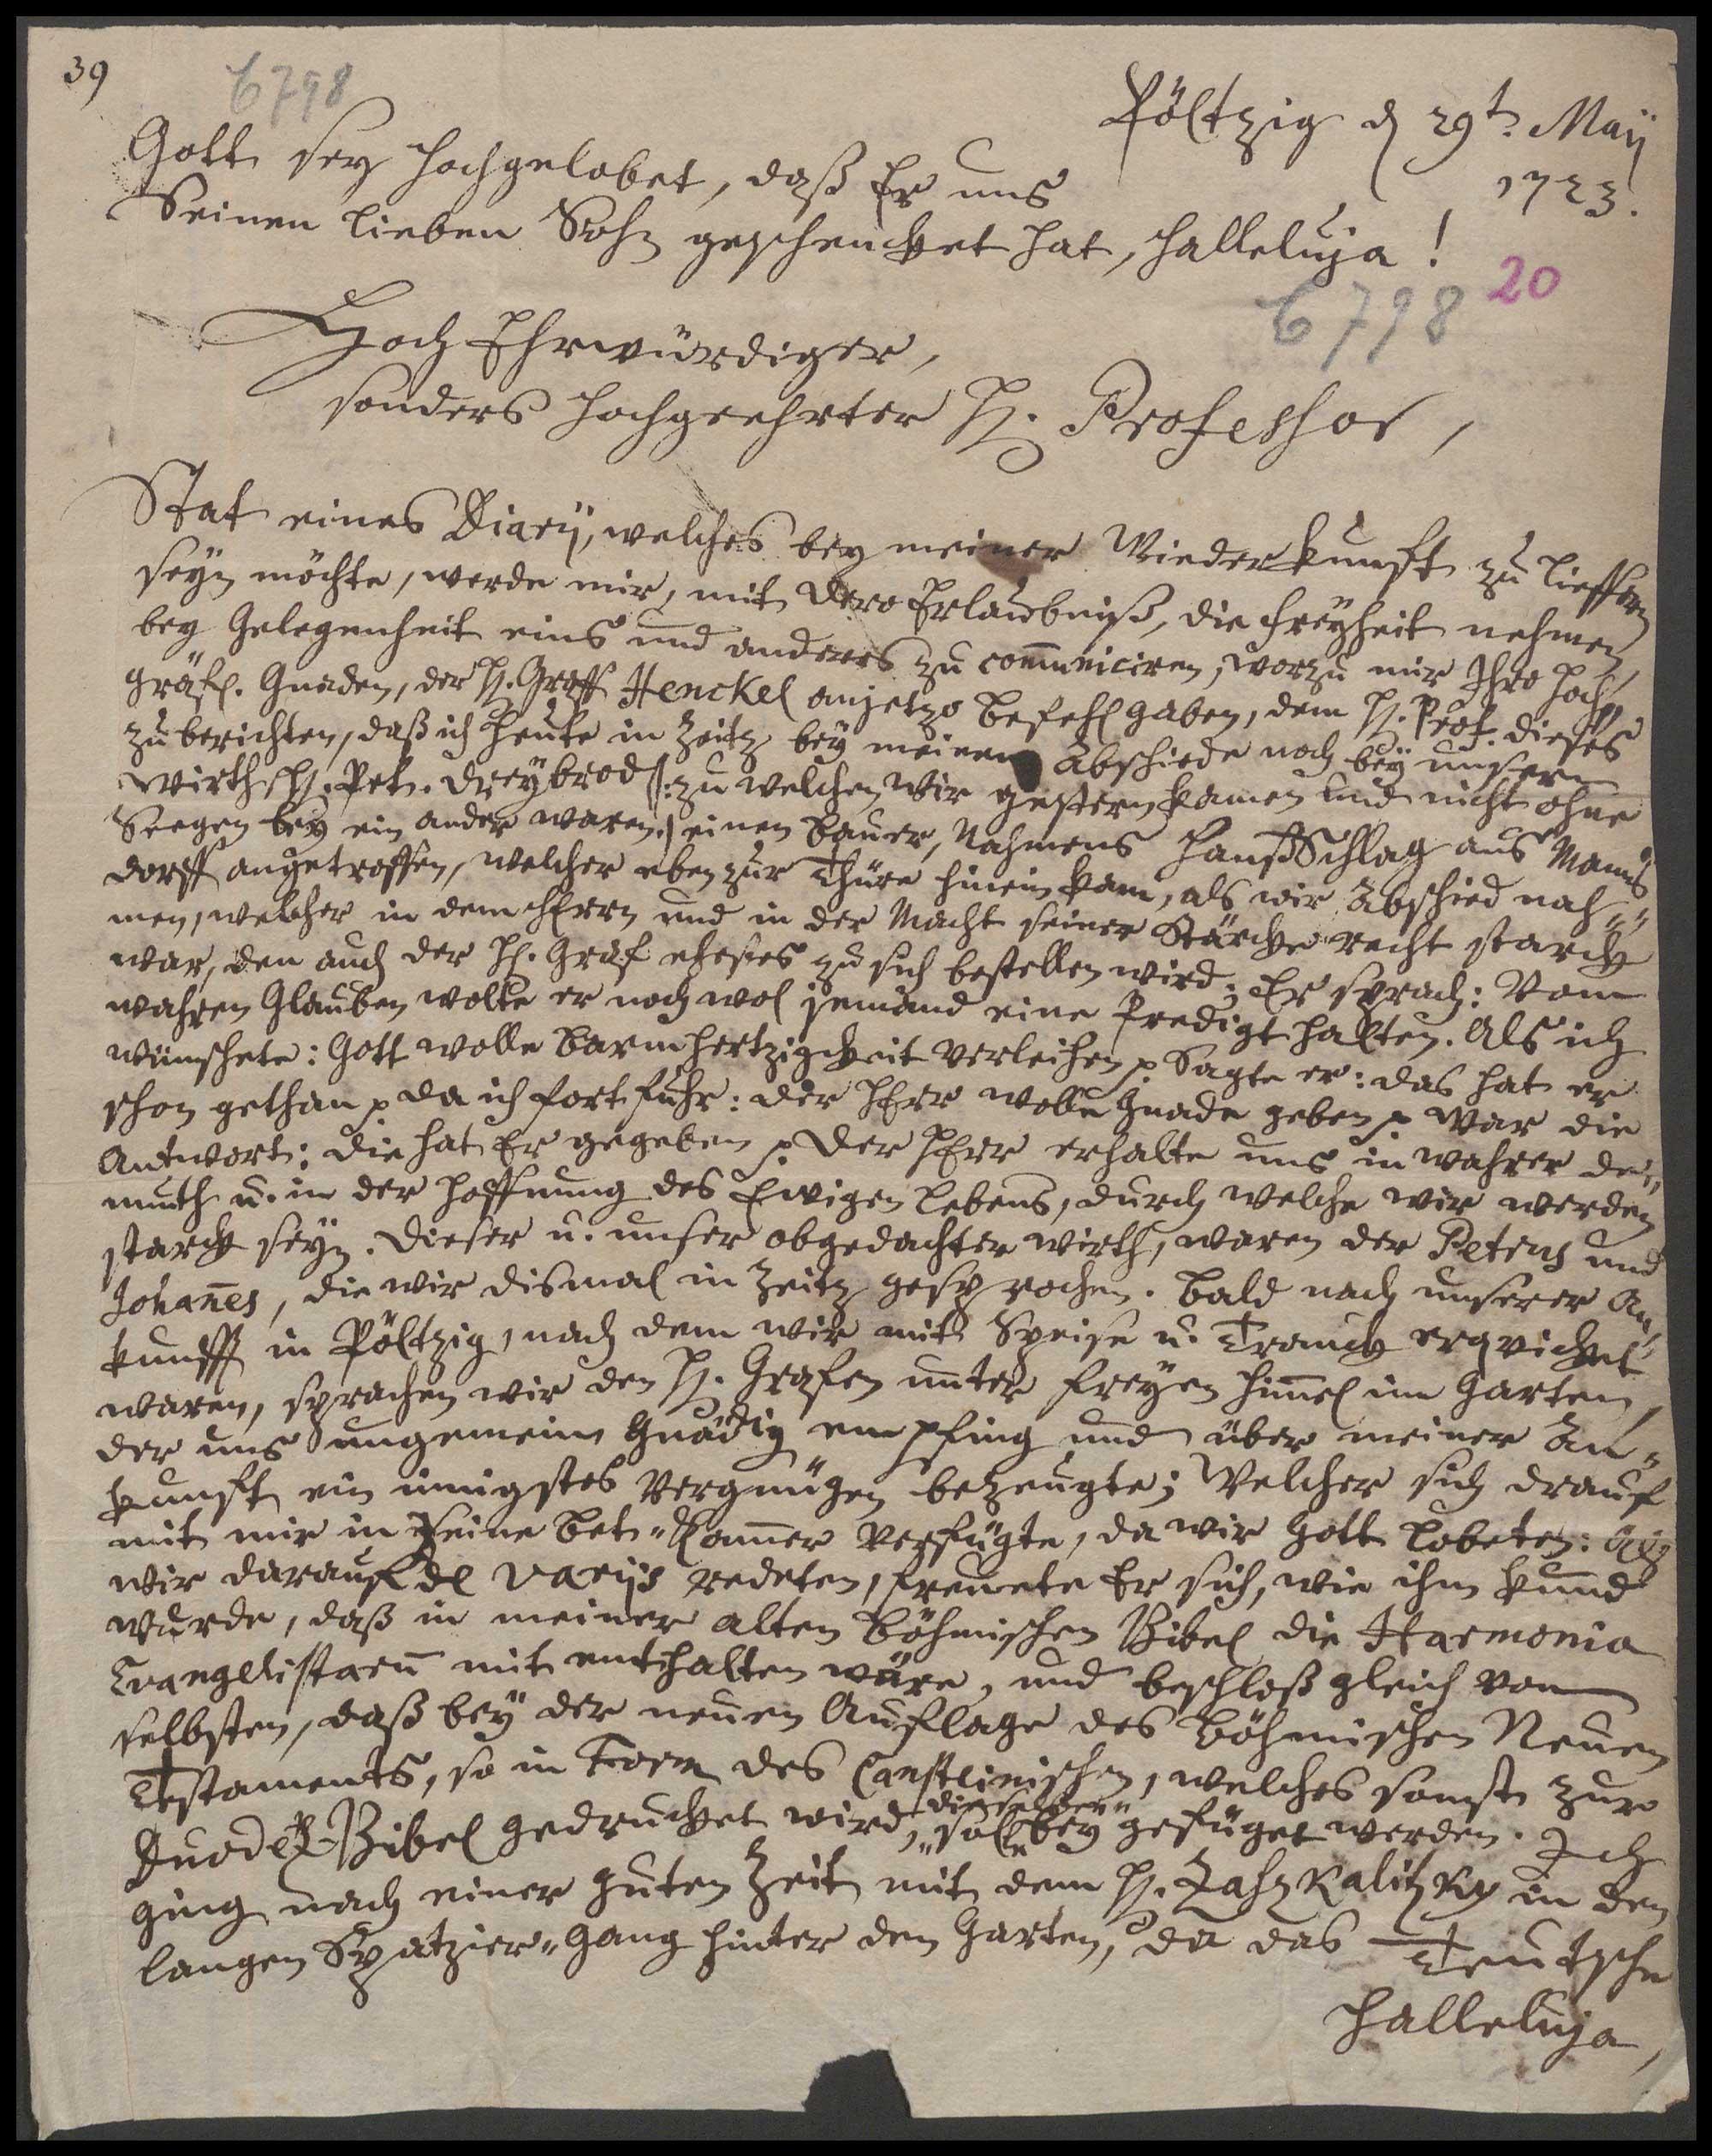 39
6798
Pöltzig d 29t. Maÿ
1723.
Gott sey hochgelobet, daß Er uns
Seinen lieben Sohn geschencket hat, Halleluja!
20
6798
HochEhrwürdiger,
sonders hochgeehrter H. Professor,
Stat eines Diarij, welches bey meiner Wiederkunfft zu lieffern
seyn möchte, werde mir, mit Dero Erlaubniß, die freyheit nehmen,
bey Gelegenheit eins und anders zu com̅uniciren, worzu mir Ihro Hoch„
gräfl. Gnaden, der H. Graff Henckel anjetzo befehl gaben, dem H. Prof. dieses
zu berichten, daß ich heute in Zeitz bey meinem Abschiede noch bey unserm
Wirth H. Pet. Dreybrod /: zu welchen wir gestern kamen und nicht ohne
Seegen bey ein ander waren :/ einen Bauer, Nahmens Hanß Schlag aus Manns
dorff angetroffen, welcher eben zur Thüre hinein kam, als wir Abschied nah„
men, welcher in dem HErrn und in der Macht seiner Stärcke recht starck
war, den auch der H. Graf ehestes zu sich bestellen wird; Er sprach: Vom
wahren Glauben wolte er noch wol jemand eine Predigt halten. Als ich
wünschete: Gott wolle Barmhertzigkeit verleihen p Sagte er: das hat er
schon gethan p da ich fort fuhr: der HErr wolle Gnade geben p War die
Antwort: die hat Er gegeben p. Der HErr erhalte uns in wahrer De„
muth u. in der Hoffnung des Ewigen Lebens, durch welche wir werden
starck seyn. Dieser u. unser obgedachter Wirth, waren der Petrus und
Johan̅es, die wir dismal in Zeitz gesprochen. Bald nach unserer An„
kunfft in Pöltzig, nach dem wir mit Speise u. Tranck erqvicket
waren, sprachen wir den H. Grafen unter freyen Him̅el im Garten,
der uns ungemein Gnädig empfing und über meiner An„
kunfft ein innigstes Vergnügen bezeugte; Welcher sich drauf
mit mir in seine Bet„Kam̅er verfügte, da wir Gott lobeten: Als
wir darauf de variis redeten, freuete Er sich, wie ihm kund
wurde, daß in meiner alten Böhmischen Bibel die Harmonia
Evangelistaru̅ mit enthalten wäre, und beschloß gleich von
selbsten, daß bey der neuen Auflage des Böhmischen Neuen
Testaments, so in Form des Cansteinischen, welches sonst zur
Duodez-Bibel gedrucket wird, dieselbe solle bey„gefüget werden. Ich
ging nach einer guten Zeit mit dem H. Zahzkalitzky in den
langen Spatzier„Gang hinter den Garten, da das Teutsche
Halleluja,